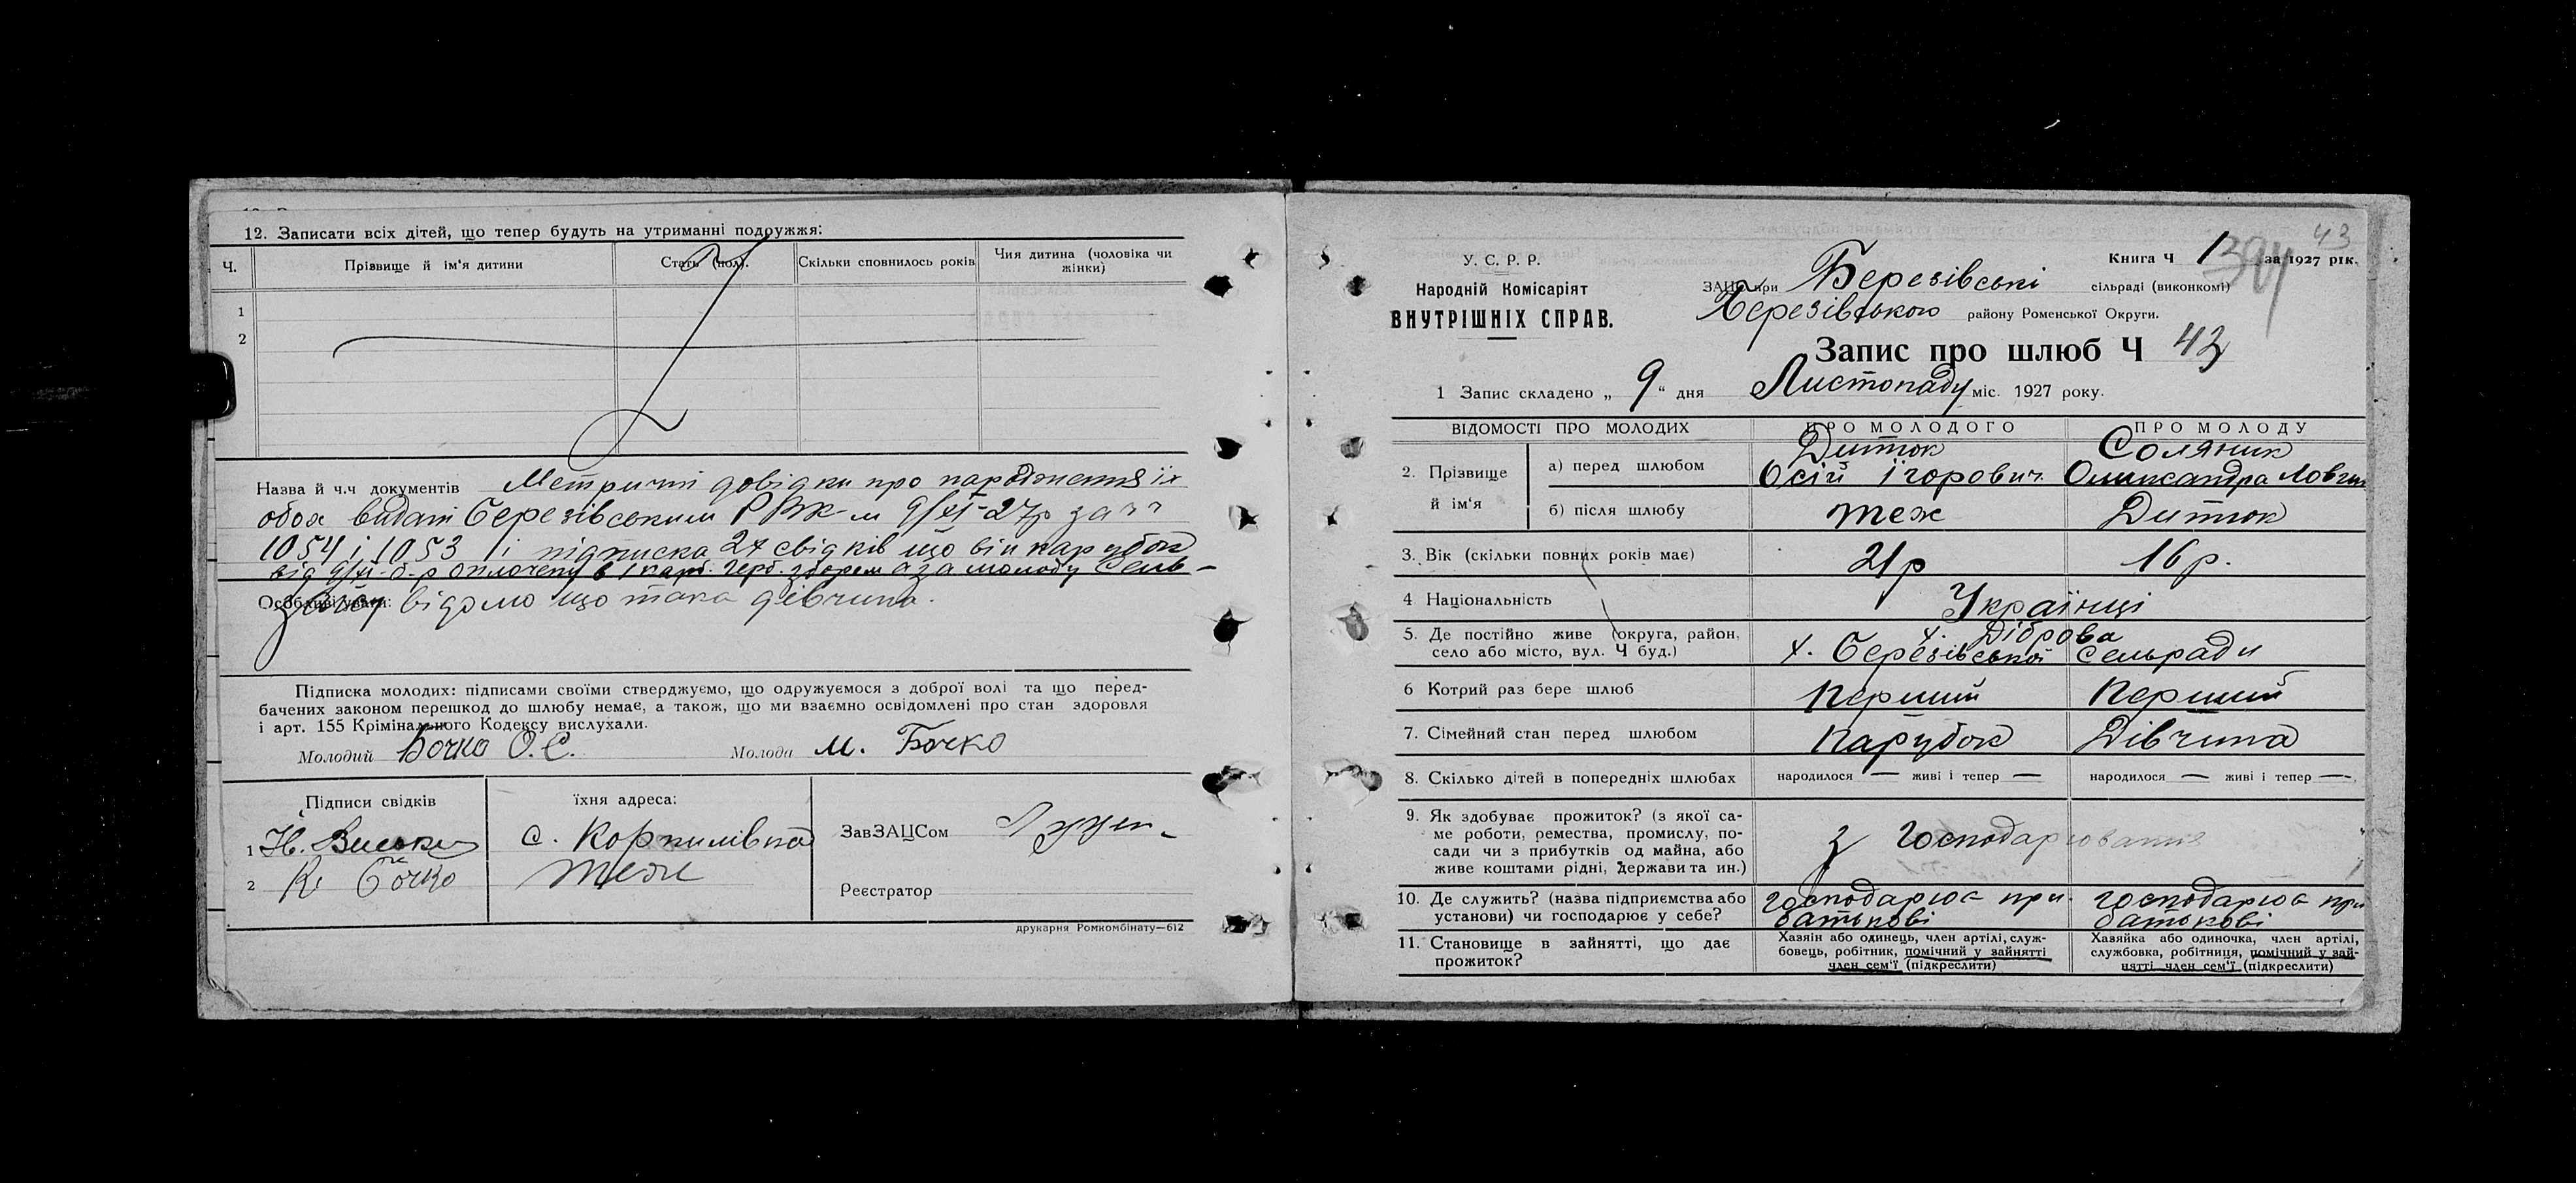 12. Записати всіх дітей, що тепер будуть на утриманні подружжя:
Ч. Прізвище й ім'я дитини Стать (пол). Скільки сповнилось років Чия дитина (чоловіка чи жінки)
1
2
Назва й ч.ч документів Метричні довідки про народження їх
обох видані Березівським РВК-м 9/XI-27р за чч
1054 і 1053 і підписка 2х свідків що він парубок
від 9/XI-б-р оплочену в 1 карб. герб. збором а за молоду Сель-
Особливі уваги: відомо що така дівчина.
Підписка молодих: підписами своїми стверджуємо, що одружуємося з доброї волі та що перед-
бачених законом перешкод до шлюбу немає, а також, що ми взаємно освідомлені про стан здоровля
і арт. 155 Крімінального Кодексу вислухали.
Молодий Бочко О.С. Молода М. Бочко
Підписи свідків їхня адреса:
1 Н. с. Коршилівка ЗавЗАЦСом
2 К. Бочко теж
Реєстратор
друкарня Ромкомбінату—612
43
У. С. Р. Р. Книга Ч 1 за 1927 рік.
394
Народній Комісаріят ЗАЦС при Березівські сільраді (виконкомі)
ВНУТРІШНІХ СПРАВ. Березівського району Роменської Округи.
Запис про шлюб Ч 43
1 Запис складено „ 9 “ дня Листопаду міс. 1927 року.
ВІДОМОСТІ ПРО МОЛОДИХ ПРО МОЛОДОГО ПРО МОЛОДУ
2. Прізвище й ім'я а) перед шлюбом Диток Соляник
Осій Ігорович Олександра
б) після шлюбу теж Диток
3. Вік (скільки повних років має) 21р 16р.
4 Національність Українці
5. Де постійно живе (округа, район, х. Діброва
село або місто, вул. Ч буд.) х. Березівської Сельради
6 Котрий раз бере шлюб Перший Перший
7. Сімейний стан перед шлюбом Парубок Дівчина
8. Скілько дітей в попередніх шлюбах народилося — живі і тепер — народилося — живі і тепер —
9. Як здобуває прожиток? (з якої са-
ме роботи, ремества, промислу, по-
сади чи з прибутків од майна, або
живе коштами рідні, держави та ин.) З господарювання
10. Де служить? (назва підприємства або господарює при господарює при
установи) чи господарює у себе? батькові батькові
11. Становище в зайнятті, що дає Хазяін або одинець, член артілі, служ- Хазяйка або одиночка, член артілі,
прожиток? бовець, робітник, помічний у зайнятті службовка, робітниця, помічний у зай-
член сем'ї (підкреслити) нятті член сем'ї (підкреслити)